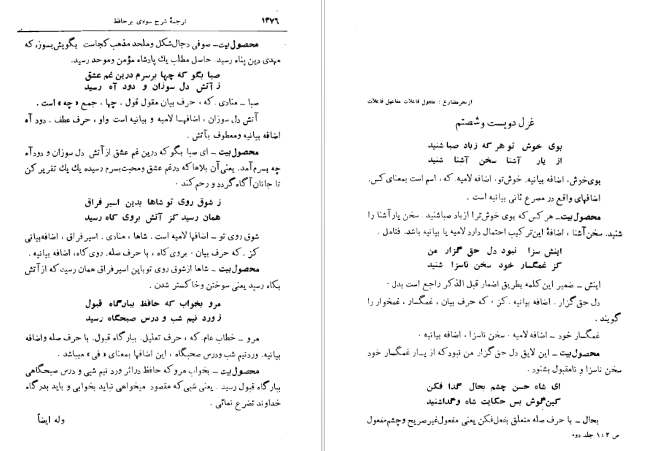 ۱۳۷۶
ترجمهٔ شرح سودی بر حافظ
محصول بیت ــ صوفی دجال شکل و ملحد مذهب کجاست بگویش بسوز، که
مهدی دین پناه رسید. حاصل مطلب یك پادشاه مؤمن و موحد رسید.
صبا بگو که چها برسرم درین غم عشق
ز آتش دل سوزان و دود آه رسید
صبا ــ منادی. که ، حرف بیان مقول قول . چها ، جمع « چه » است .
آتش دل سوزان ، اضافهها لامیه و بیانیه است واو ، حرف عطف . دود آه
اضافه بیانیه ومعطوف بآتش .
محصول بیت ــ ای صبا بگو که درین غم عشق از آتش دل سوزان و دود آه
چه بسرم آمد. یعنی آن بلاها که درغم عشق ومحبت بسرم رسیده یك یك تقریر کن
تا جانان آگاه گردد و رحم کند .
ز شوق روی تو شاها بدین اسیر فراق
همان رسید کز آتش بروی کاه رسید
شوق روی تو ــ اضافها لامیه است . شاها ، منادی . اسیر فراق ، اضافه بیانی
کز . که حرف بیان . بروی کاه ، با حرف صله. روی کاه ، اضافه بیانیه .
محصول بیت ــ شاها ازشوق روی تو باین اسیر فراق همان رسیت که از آتش
بکاه رسید یعنی سوختن وخاکستر شدن .
مرو بخواب که حافظ ببارگاه قبول
ز ورد نیم شب و درس صبحگاه رسید
مرو ــ خطاب عام. که ، حرف تعلیل. ببارگاه قبول. با حرف صله واضافه
بیانیه. وردنیم شب ودرس صبحگاه ، این اضافها بمعنای « فی » میباشد .
محصول بیت ــ بخواب مرو که حافظ دراثر ورد نیم شبی و درس صبحگاهی
ببارگاه قبول رسید . یعنی شبی که مقصود میخواهی نباید بخوابی و باید بدرگاه
خداوند تضرع نمائی .
وله ایضاً
از بحر مضارع : مفعول فاعلات مفاعیل فاعلات
غزل دویست و شصتم
بوی خوش تو هر که زباد صبا شنید
از یار آشنا سخن آشنا شنید
بوی خوش، اضافه بیانیه. خوش تو، اضافه لامیه. که ، اسم است بمعنای کس.
اضافهای واقع در مصرع ثانی بیانیه است .
محصول بیت ــ هر کس که بوی خوش ترا ازباد صبا شنید . سخن یار آشنا را
شنید. سخن آشنا ، اضافهٔ این ترکیب احتمال دارد لامیه یا بیانیه باشد. فتامل .
اینش سزا نبود دل حق گزار من
کز غمگسار خود سخن ناسزا شنید
اینش ــ ضمیر این کلمه بطریق اضمار قبل الذکر راجع است بدل .
دل حق گزار . اضافه بیانیه . کز . که حرف بیان ، غمگسار ، غمخوار را
گویند .
غمگسار خود ــ اضافه لامیه . سخن ناسزا ، اضافه بیانیه .
محصول بیت ــ این لایق دل حق گزار من نبود که از یار غمگسار خود
سخن ناسزا و نامقبول بشنود .
ای شاه حسن چشم بحال گدا فکن
کین گوش بس حکایت شاه و گدا شنید
بحال ــ با حرف صله متعلق بفعل فکن یعنی مفعول غیر صریح و چشم مفعول
ص ۱۰۲ جلد دوم